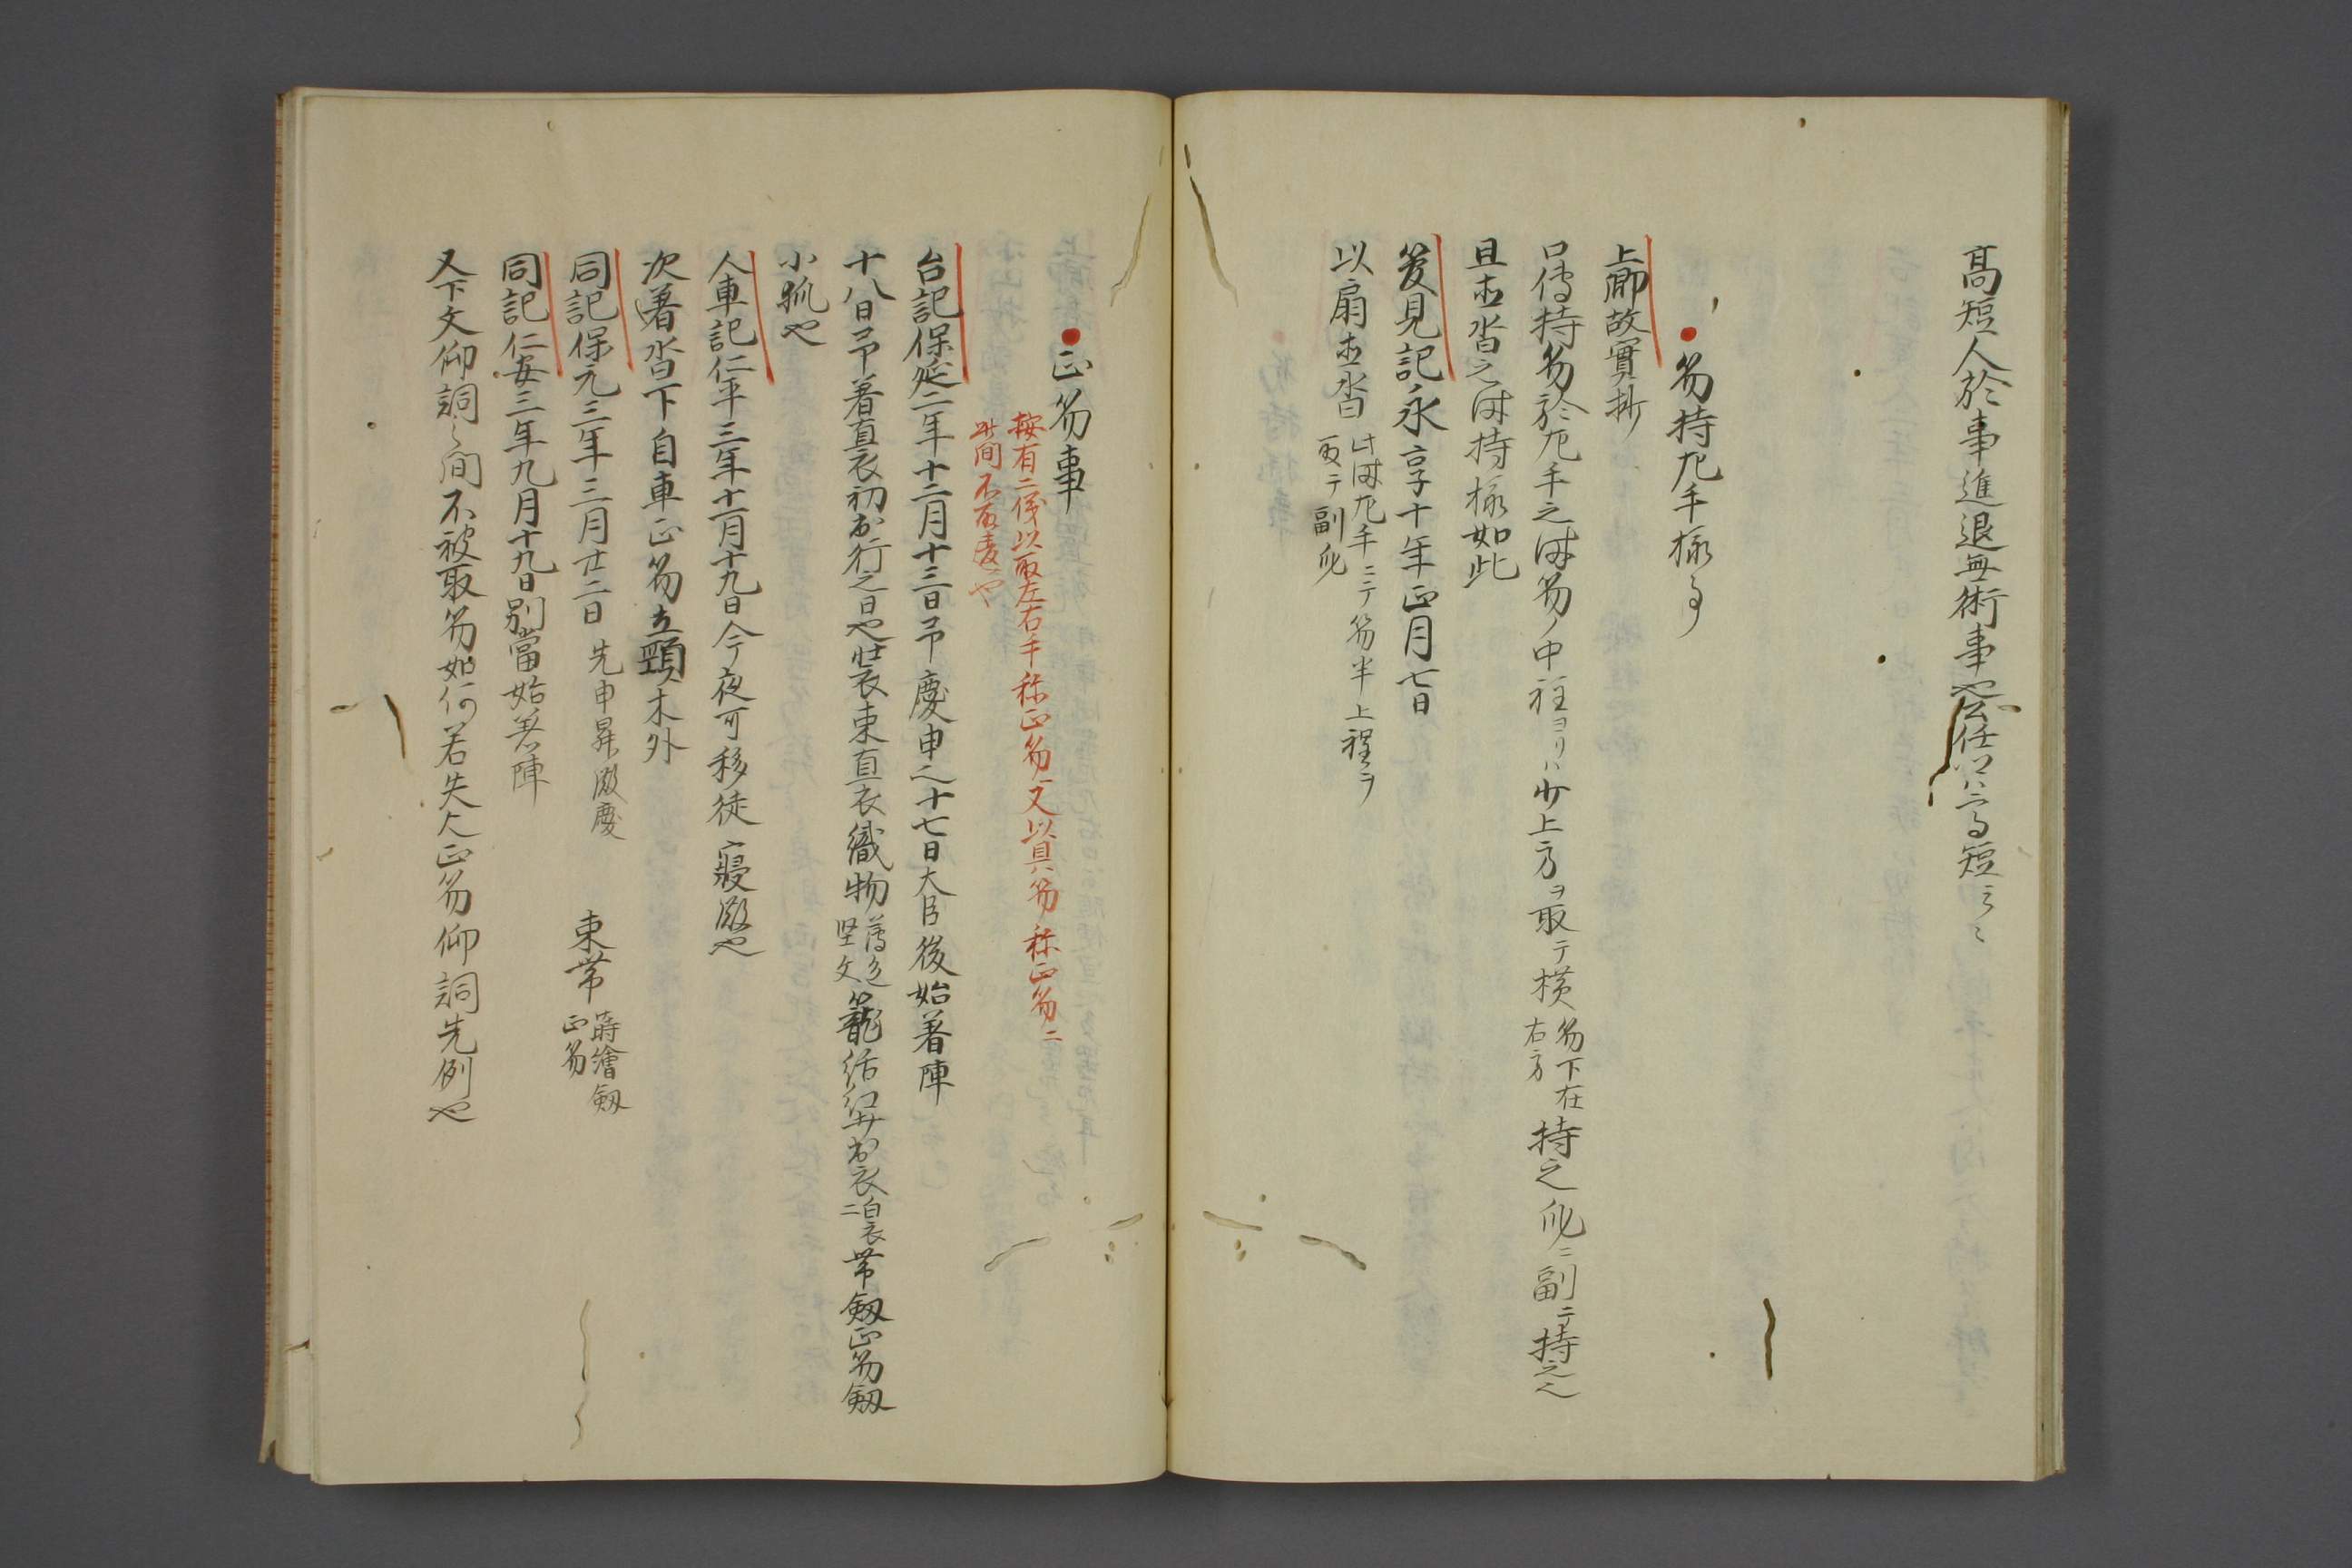 高短人於事進退無術事也公任卿ハ高短云々
笏持左手様事
上卿故實抄
口傳持笏於左手之時笏ノ中程ヨリハ少上方ヲ取テ横笏下在右方持之肱ニ副テ持之也
且直沓之時持様如此
箋見記永享十年正月七日
以扇直沓此時左手ニテ笏半上程ヲ取テ副肱
正笏事
按有二儀以取左右手称正笏又以具笏称正笏二
此間不可蔑也
台記保延二年十二月十三日早慶申之十七日大臣後始着陣
十八日早着直衣初出行之日也装束直衣織物薄色堅文籠括紅単出衣白衣二帯劔正笏劔
小狐也
人車記仁平三年十一月十九日今夜可移徒寢殿也
次著沓下自車正笏立頸木外
同記保元三年三月廿二日先申昇殿慶 束帯蒔繪劔正笏
同記仁安三年九月十九日別當始著陣
又下文仰詞之間不被取笏如何若失欠正笏仰詞先例也